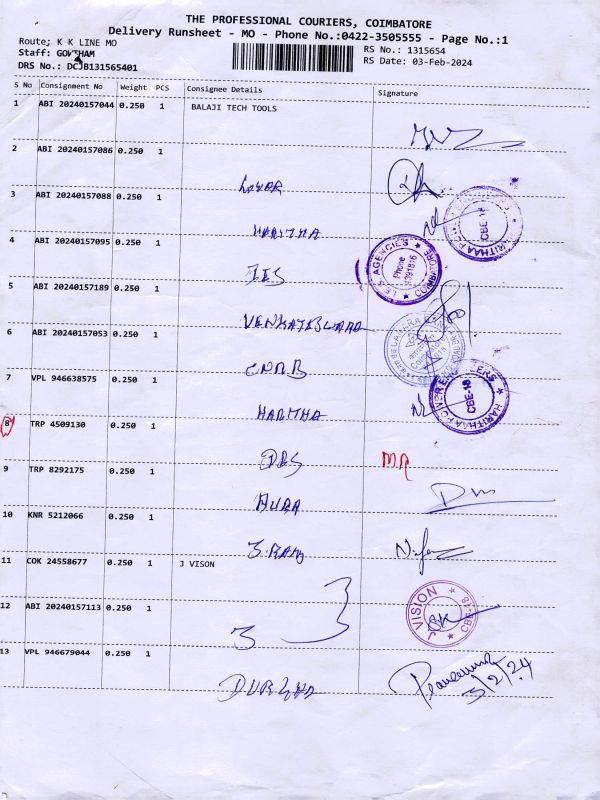 THE PROFESSIONAL COURIERS, COIMBATORE
Delivery Runsheet - MO - Phone No.:0422-3505555 - Page No.:1
Route; K K LINE MO
Staff: GOWTHAM
DRS No.: DCJB131565401
RS No.: 1315654
RS Date: 03-Feb-2024
S No Consignment No Weight PCS Consignee Details Signature
1 ABI 20240157044 0.250 1 BALAJI TECH TOOLS
2 ABI 20240157086 0.250 1
3 ABI 20240157088 0.250 1
HARITHA
HARITHAA POWER CBE-18
4 ABI 20240157095 0.250 1
IES
I.E.S AGENCIES COIMBATORE Phone
5 ABI 20240157189 0.250 1
6 ABI 20240157053 0.250 1
7 VPL 946638575 0.250 1
HARITHA
HARITHAA POWER CBE-18
8 TRP 4509130 0.250 1
MR
9 TRP 8292175 0.250 1
AURA
10 KNR 5212066 0.250 1
11 COK 24558677 0.250 1 J VISON
J VISION CBE-18
12 ABI 20240157113 0.250 1
3
13 VPL 946679044 0.250 1
3/2/24